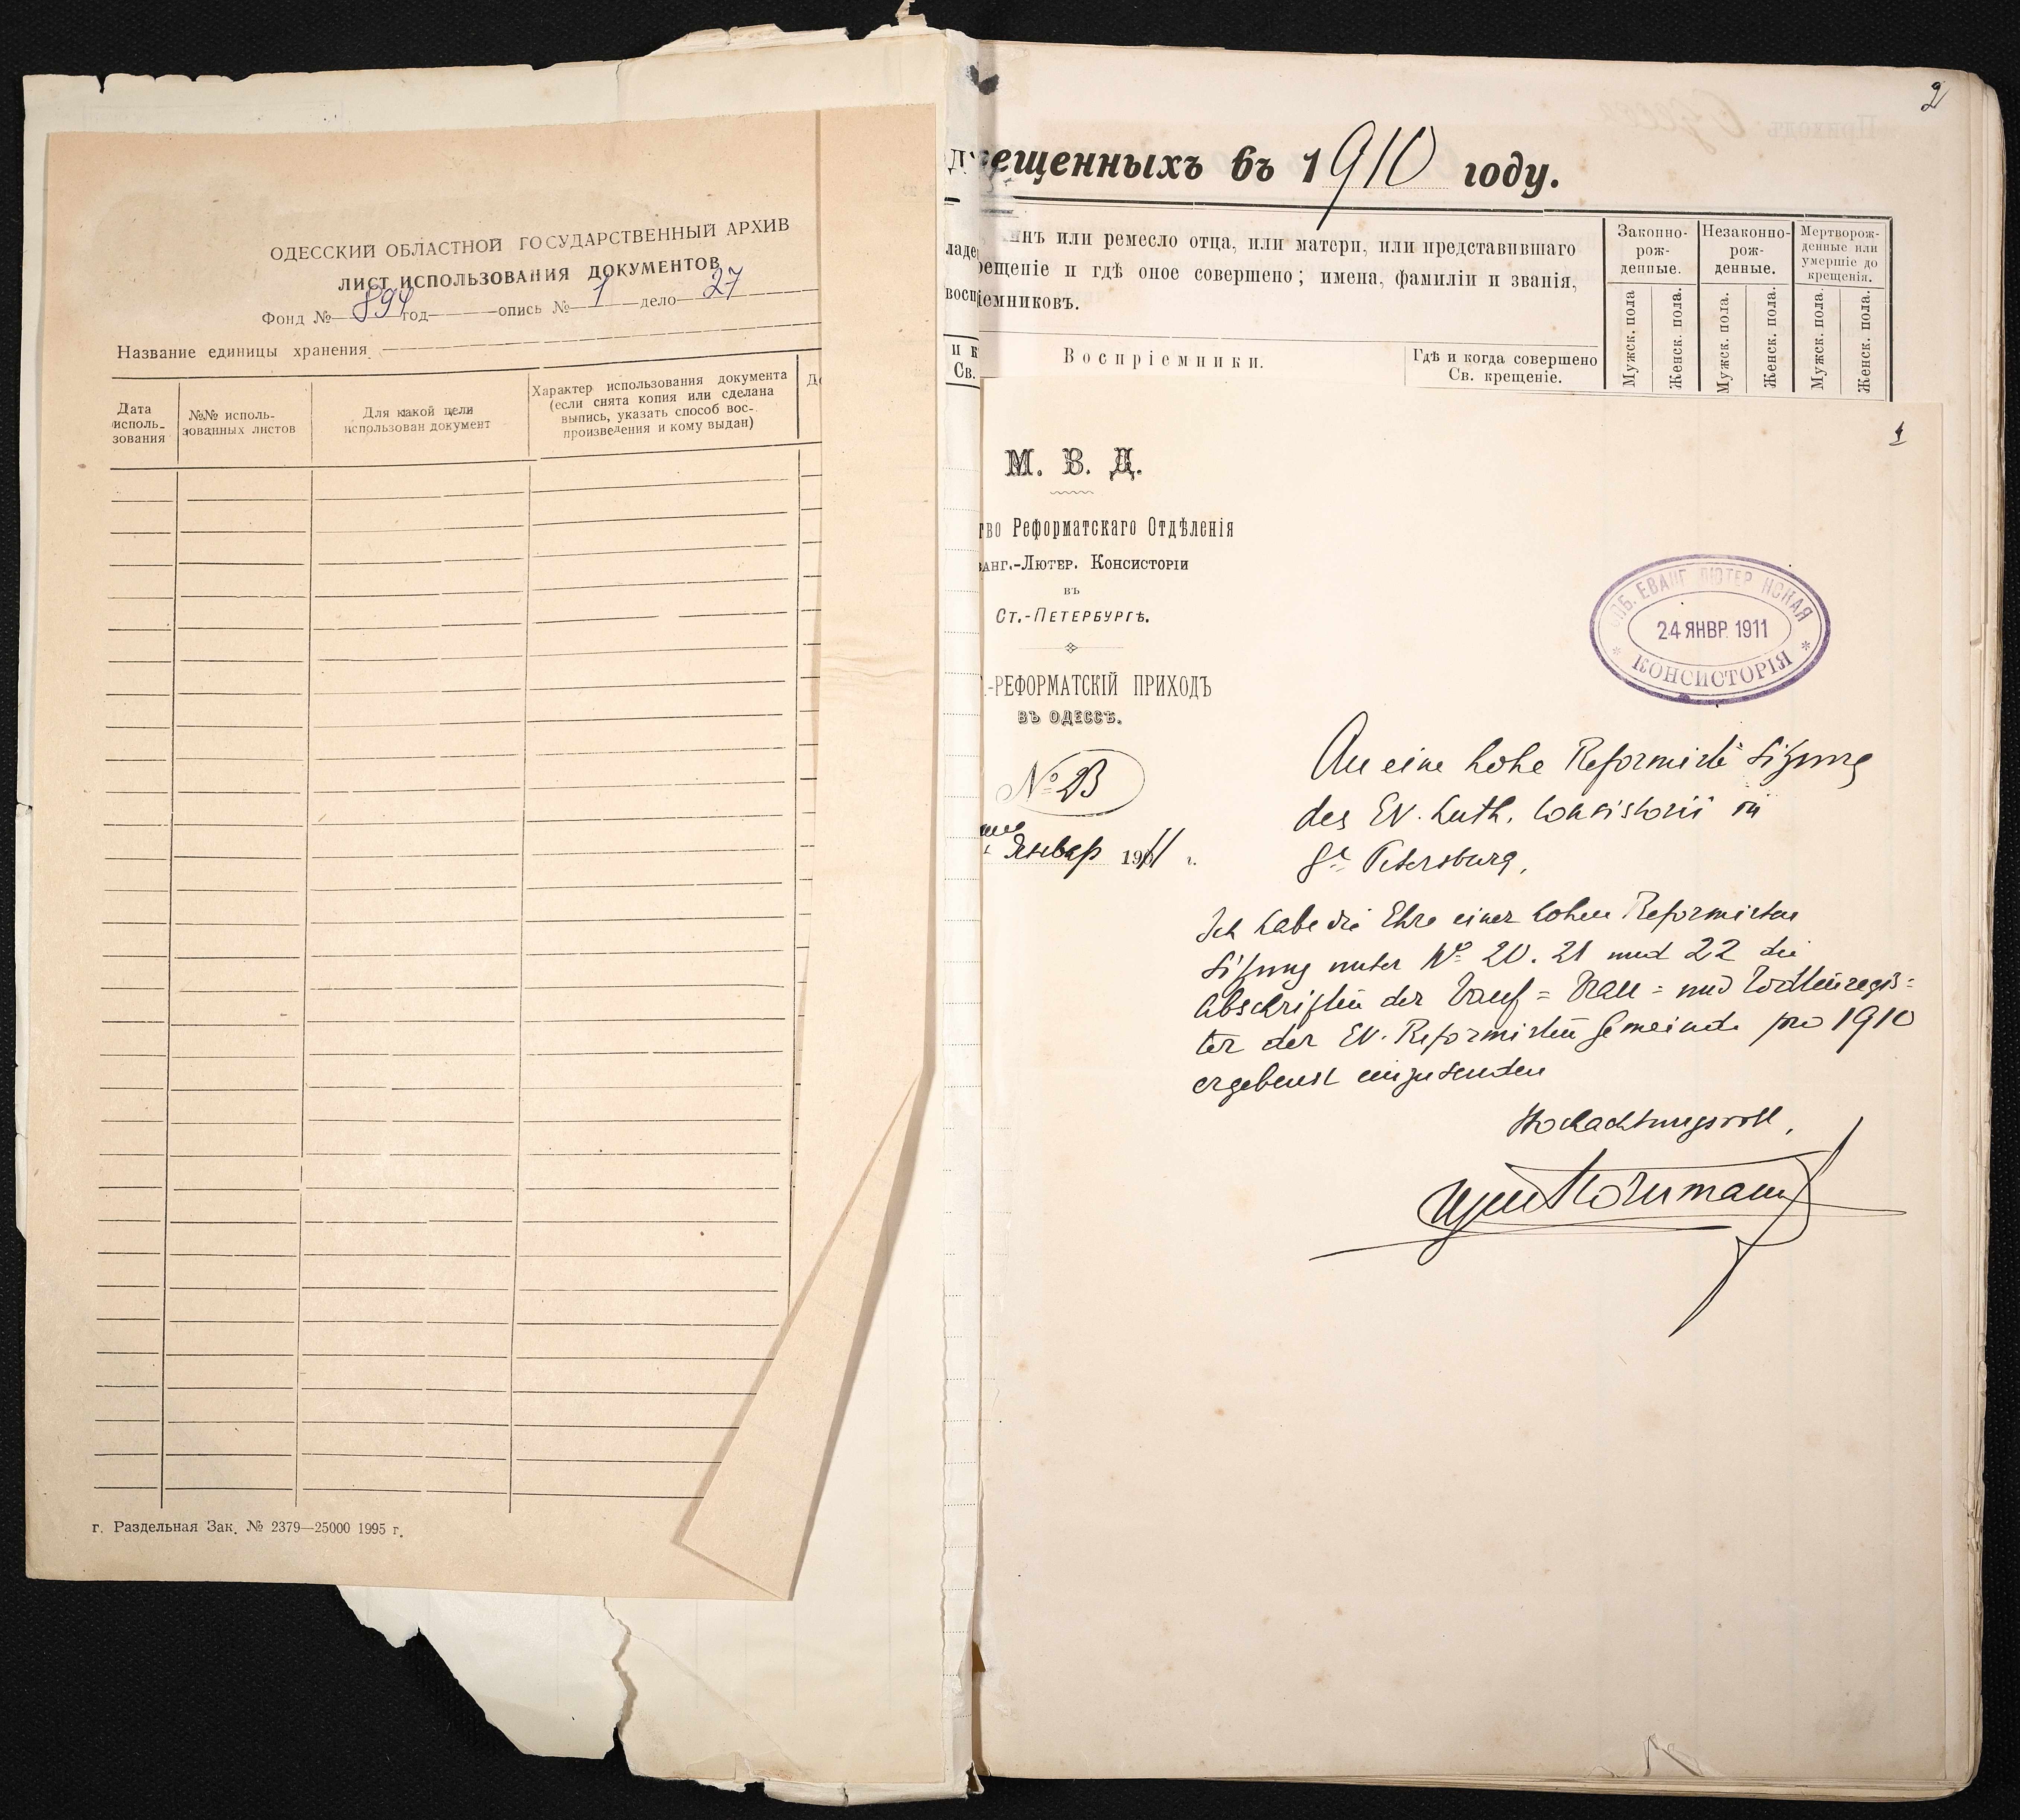 ОДЕССКИЙ ОБЛАСТНОЙ ГОСУДАРСТВЕННЫЙ АРХИВ
ЛИСТ ИСПОЛЬЗОВАНИЯ ДОКУМЕНТОВ
Фонд № 894 год опись № 1 дело 27
Название единицы хранения
Дата исполь-зования
№№ исполь-зованных листов
Для какой цели использован документ
Характер использования документа
(если снята копия или сделана
выпись, указать способ вос-
произведения и кому выдан)
г. Раздельная Зак. № 2379—25000 1995 г.
2
ещенныхъ въ 1910 году.
инъ или ремесло отца, или матери, или представившаго
рещеніе и гдѣ оное совершено; имена, фамиліи и званія,
воспріемниковъ.
Законно-
рож-
денные.
Незаконно-
рож-
денные.
Мертворож-
денные или
умершіе до
крещенія.
Воспріемники.
Гдѣ и когда совершено
Св. крещеніе.
Мужск. пола
Женск. пола.
Мужск. пола.
Женск. пола.
Мужск. пола.
Женск. пола.
и к
Св.
1
М. В. Д.
тво Реформатскаго Отдѣленія
анг.-Лютер. Консисторіи
въ
Ст.-Петербургѣ.
.-РЕФОРМАТСКІЙ ПРИХОДЪ
ВЪ ОДЕССѢ.
№ 23
Январ 1911 г.
СПБ. ЕВАНГ ЛЮТЕР НСКАЯ
24 ЯНВР. 1911
* КОНСИСТОРІЯ *
An eine hohe Reformirte Sitzung
des Ev. Luth. Consistorii in
St Petersburg,
Ich habe die Ehre einer hohen Reformirten
Sitzung unter No 20. 21 und 22 die
Abschriften der Tauf= Trau= und Todtenregis=
ter der Ev. Reformirten Gemeinde pro 1910
ergebenst einzusenden
Hochachtungsvoll,